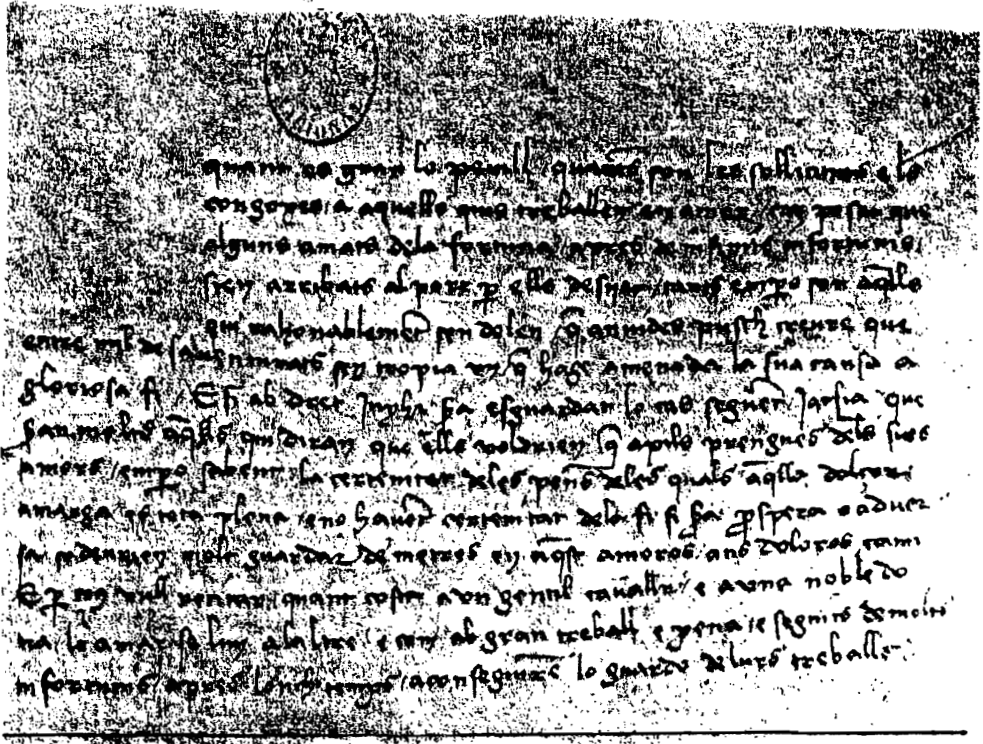 quant es gran lo perill quantes son les sollicituts e les
congoxes a aquells quis treballen en amor car posat que
alguns amats dela fortuna apres de infinits infortunis
sien arribats al port p ells desijat tants empo son aqlls
qui rahonablement sen dolen q anvides pusch creure que
entre mil desauenturats sen tropia vn q hage amenada la sua causa a
gloriosa fi / E si ab dret juhi sera esguardat lo cas seguent Jatsia que
sien molts aqlls qui diran que ells voldrien q axils prengues de les sues
amors / empo sabent la certenitat deles penes deles quals aqlla dolçor
amarga es tota plena / e no hauent certenitat dela fi si sera prospera o aduer
sa se deurien molt guardar de metres en aqst amoros ans doloros cami
E p ço us vull recitar quant costa a vn gentil caualler / e a vna noble do
na lo amarse lun alaltre / e com ab gran treball e pena / e seguits de molts
infortunis apres lonch temps / aconseguiren lo guardo de lurs treballs